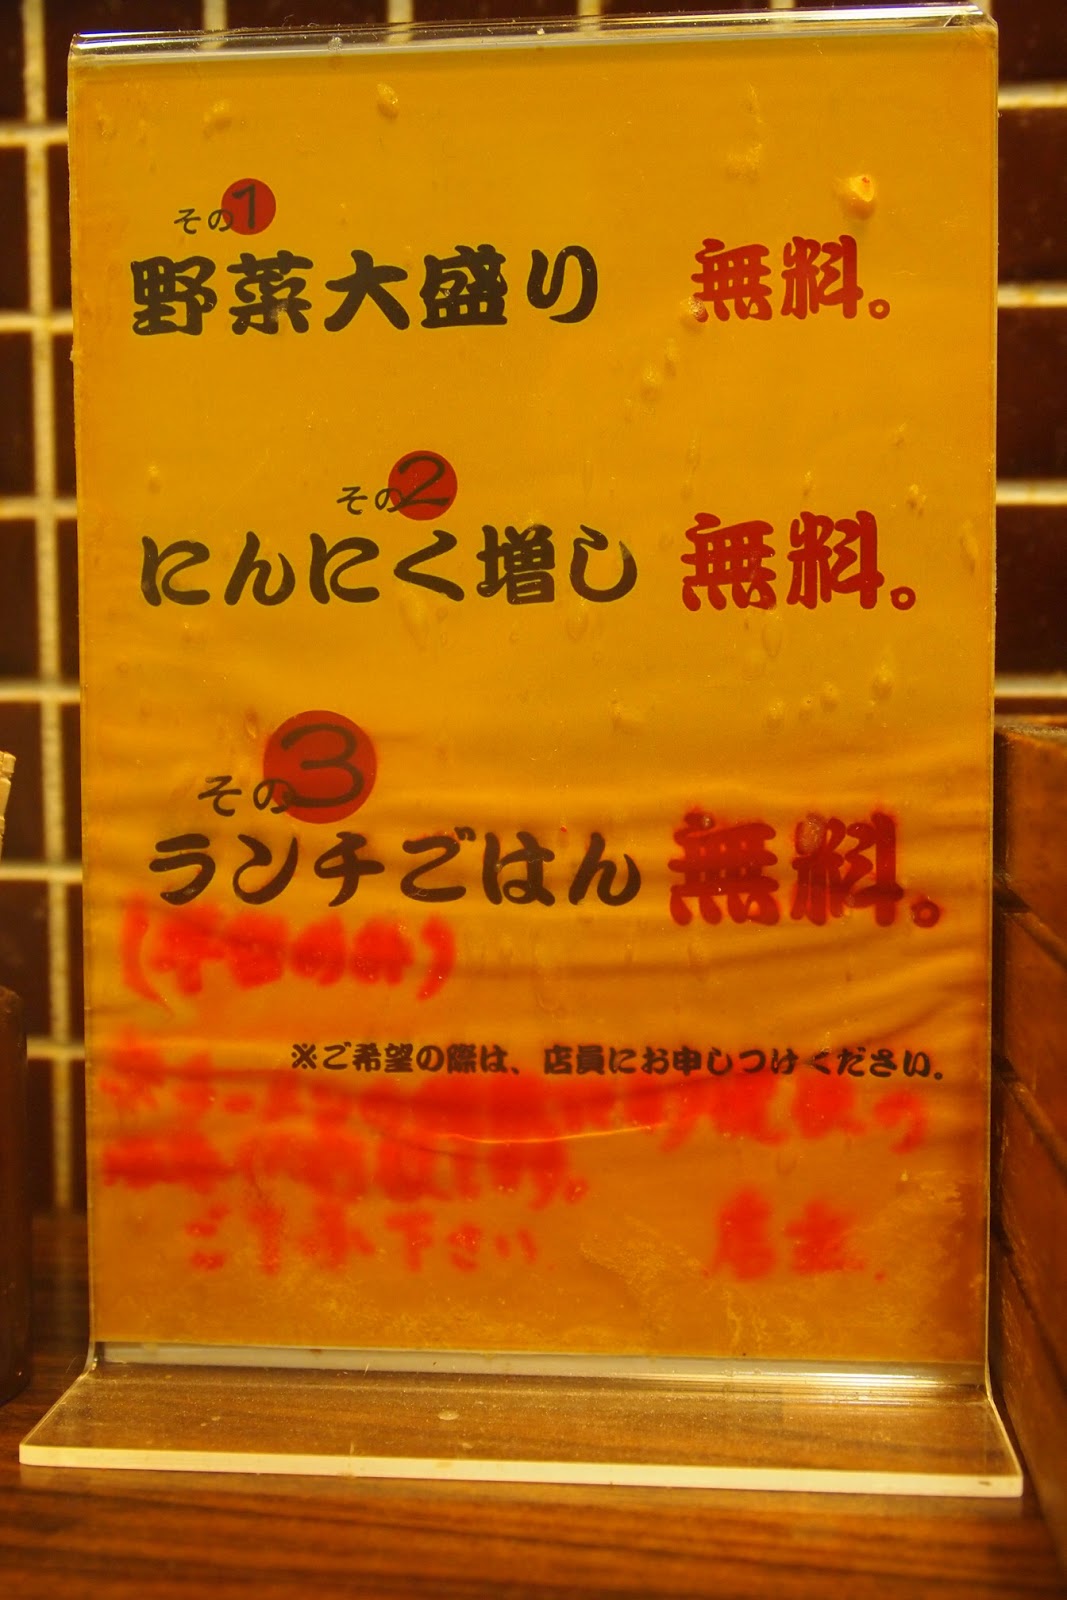 その1
野菜大盛り 無料。
その2
にんにく増し 無料。
その3
ランチごはん 無料。
(平日のみ)
※ご希望の際は、店員にお申しつけください。
ご了承下さい 店主